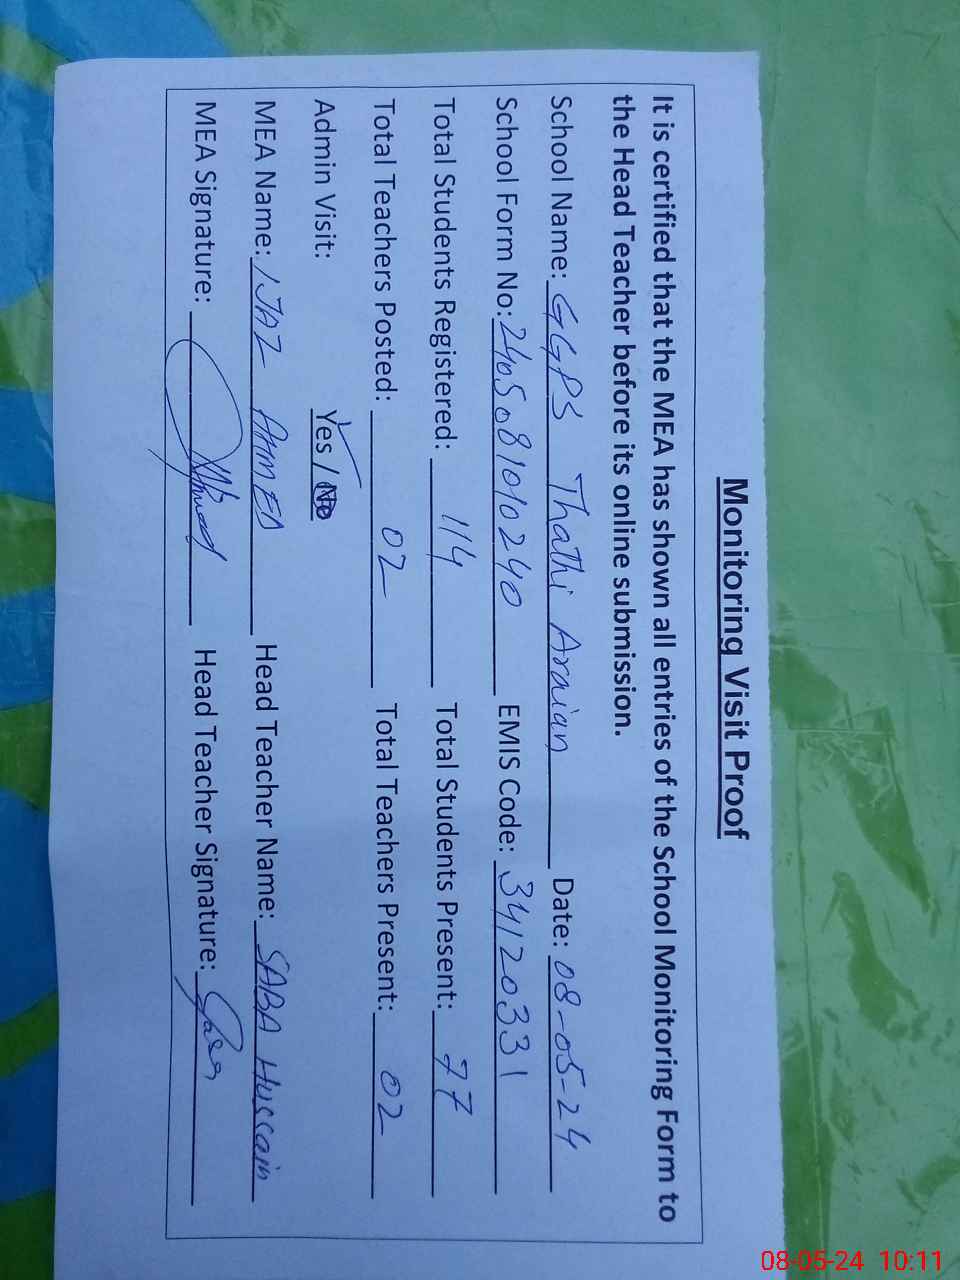 Monitoring Visit Proof
It is certified that the MEA has shown all entries of the School Monitoring Form to
the Head Teacher before its online submission.
School Name: GGPS Thathi Araian Date: 08-05-24
School Form No: 240508101010240 EMIS Code: 34120331
Total Students Registered: 114 Total Students Present: 77
Total Teachers Posted: 02 Total Teachers Present: 02
Admin Visit: Yes / No
MEA Name: IJAZ AHMED Head Teacher Name: SABA Hussain
MEA Signature: Head Teacher Signature:
08-05-24 10:11